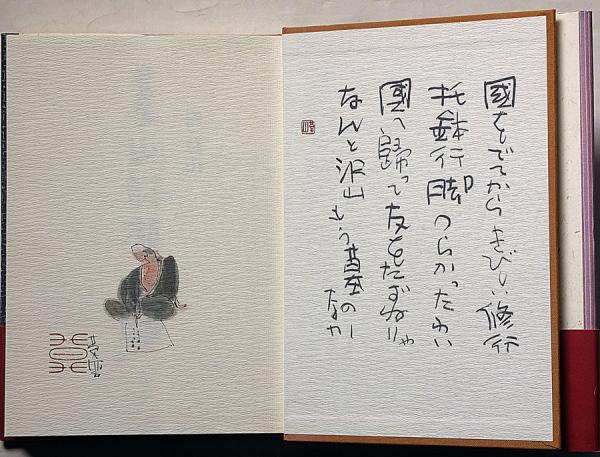 國をでてから きびしい修行
托鉢行脚 つらかったわい
國へ歸って友をたずねりゃ
なんと沢山 もう墓の下
なか